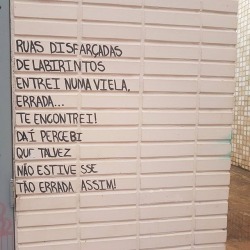 RUAS DISFARÇADAS
DE LABIRINTOS
ENTREI NUMA VIELA,
ERRADA...
TE ENCONTREI!
DAÍ PERCEBI
QUE TALVEZ
NÃO ESTIVESSE
TÃO ERRADA ASSIM!